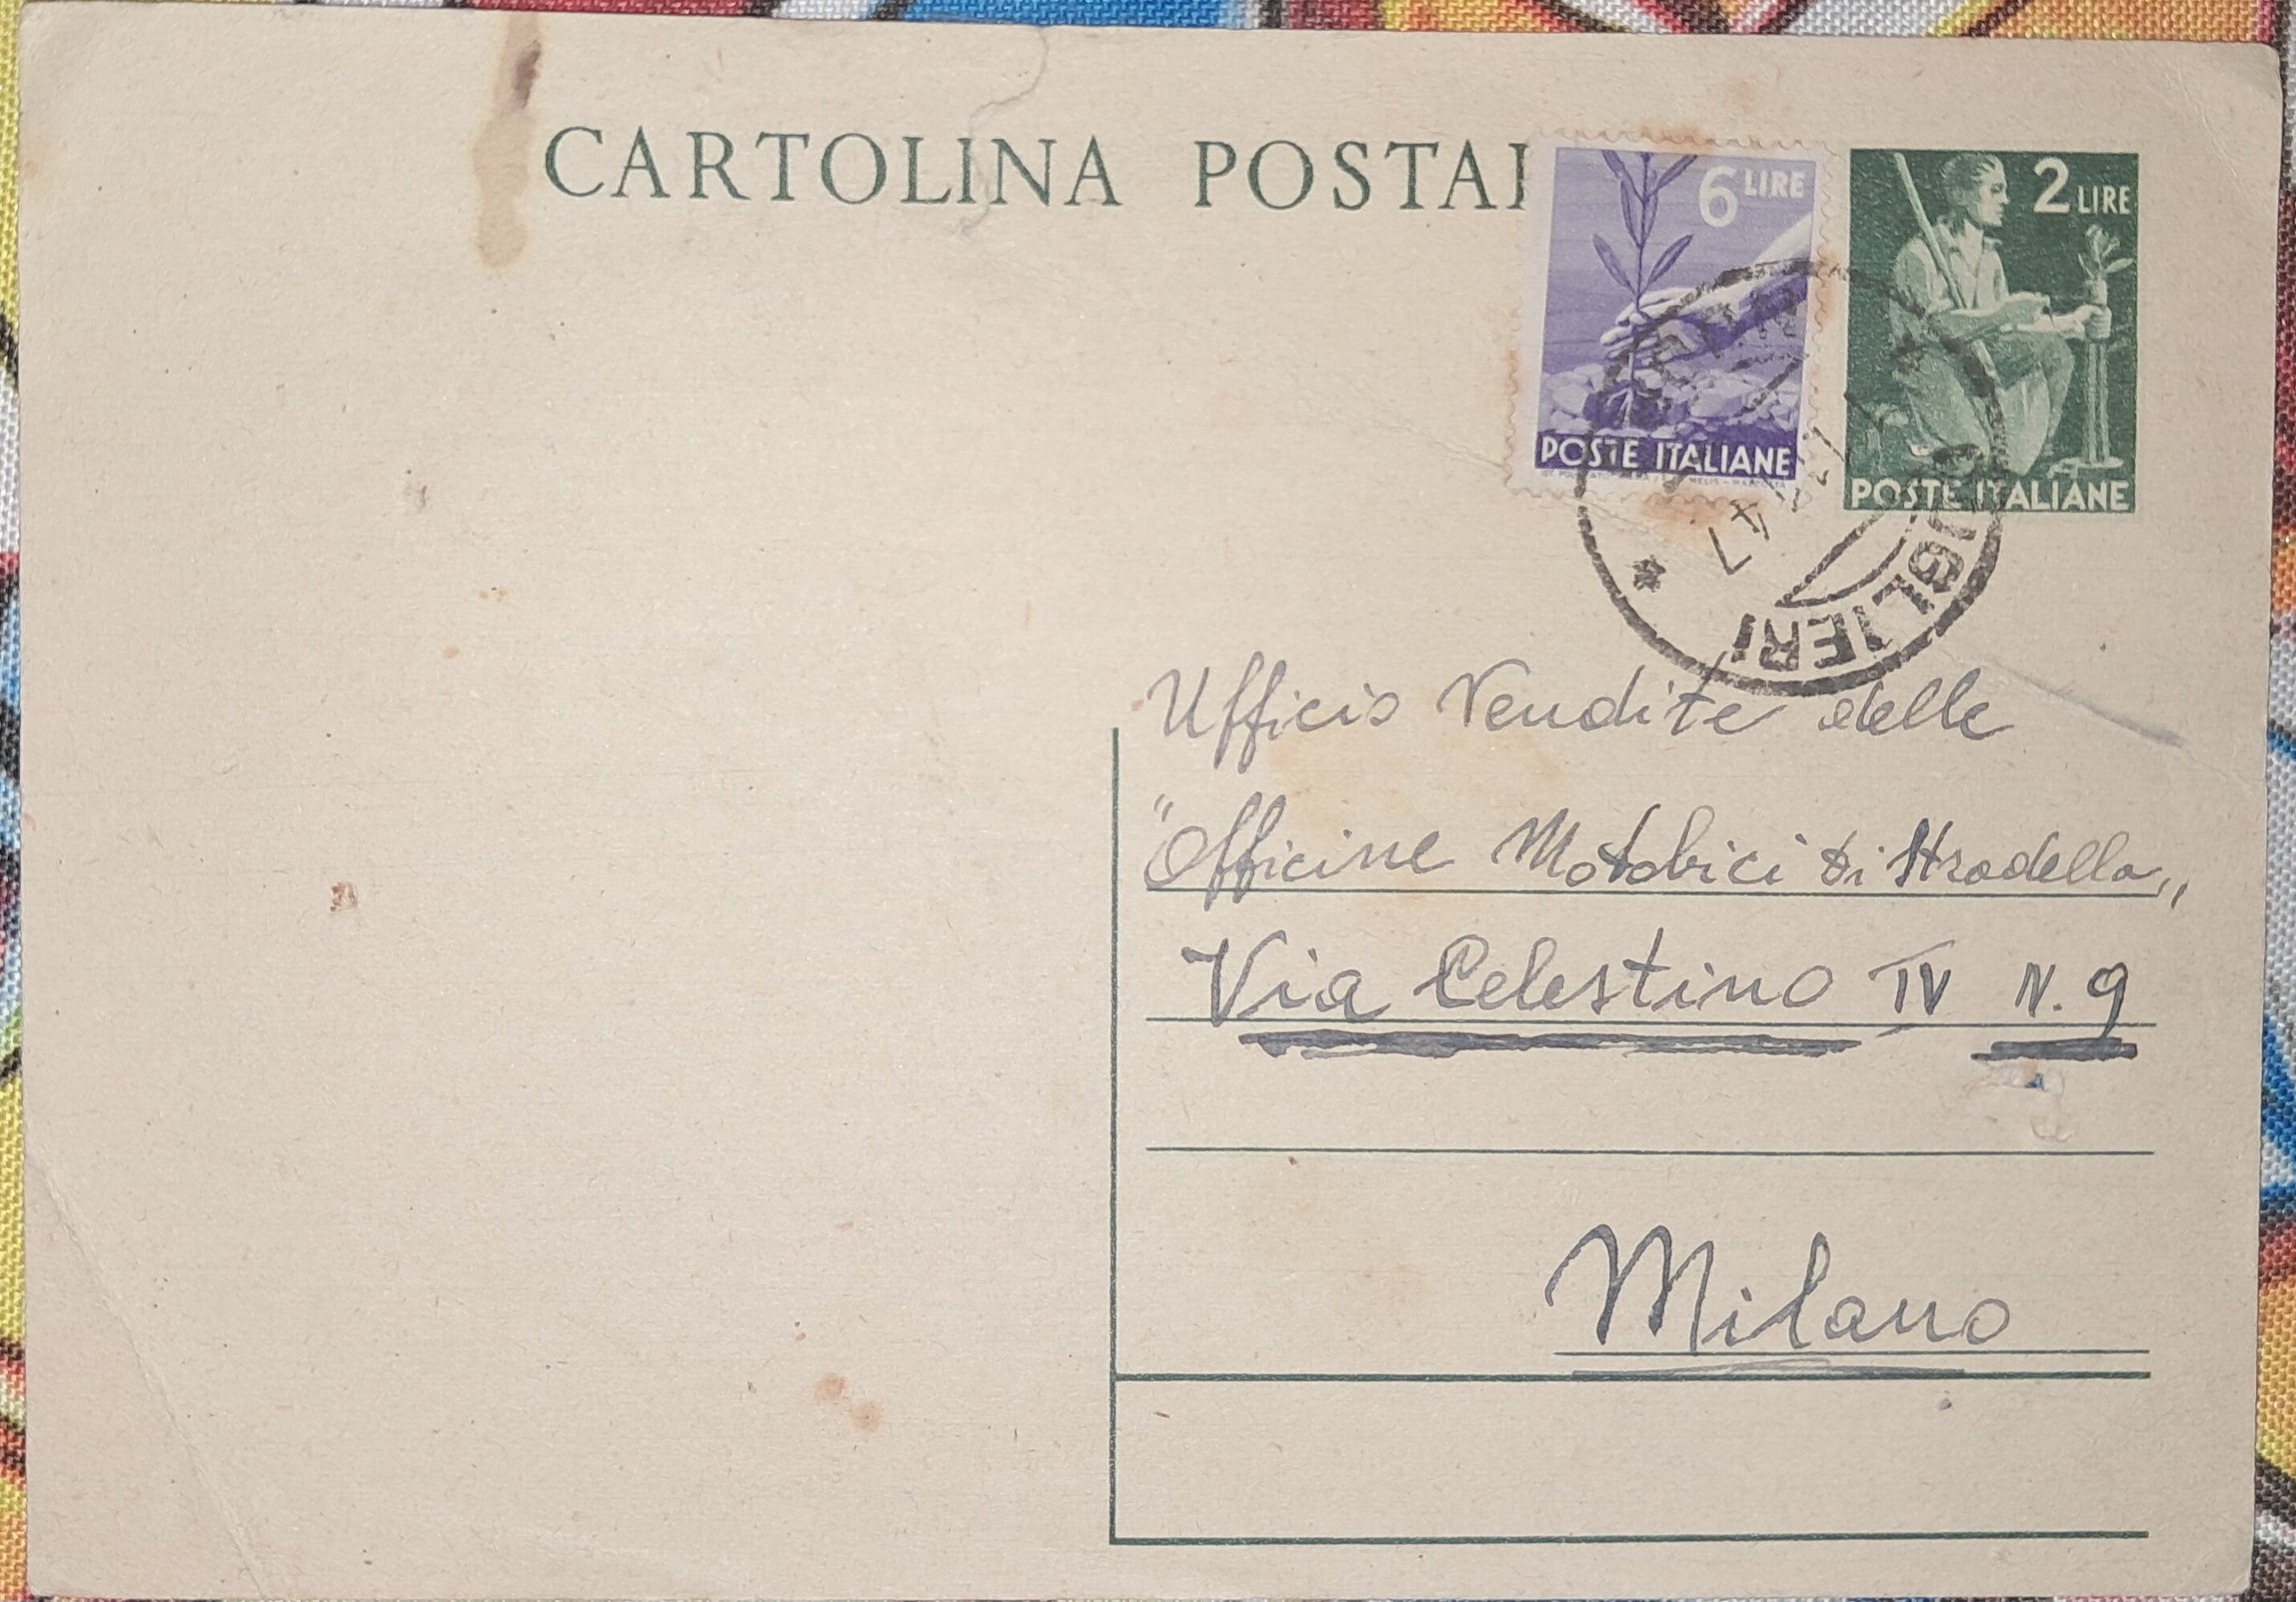 CARTOLINA POSTAL
6 LIRE
POSTE ITALIANE
2 LIRE
POSTE ITALIANE
UGLIERI
47
Ufficio Vendite delle
"Officine Motobici di Stradella„
Via Celestino IV N. 9
Milano